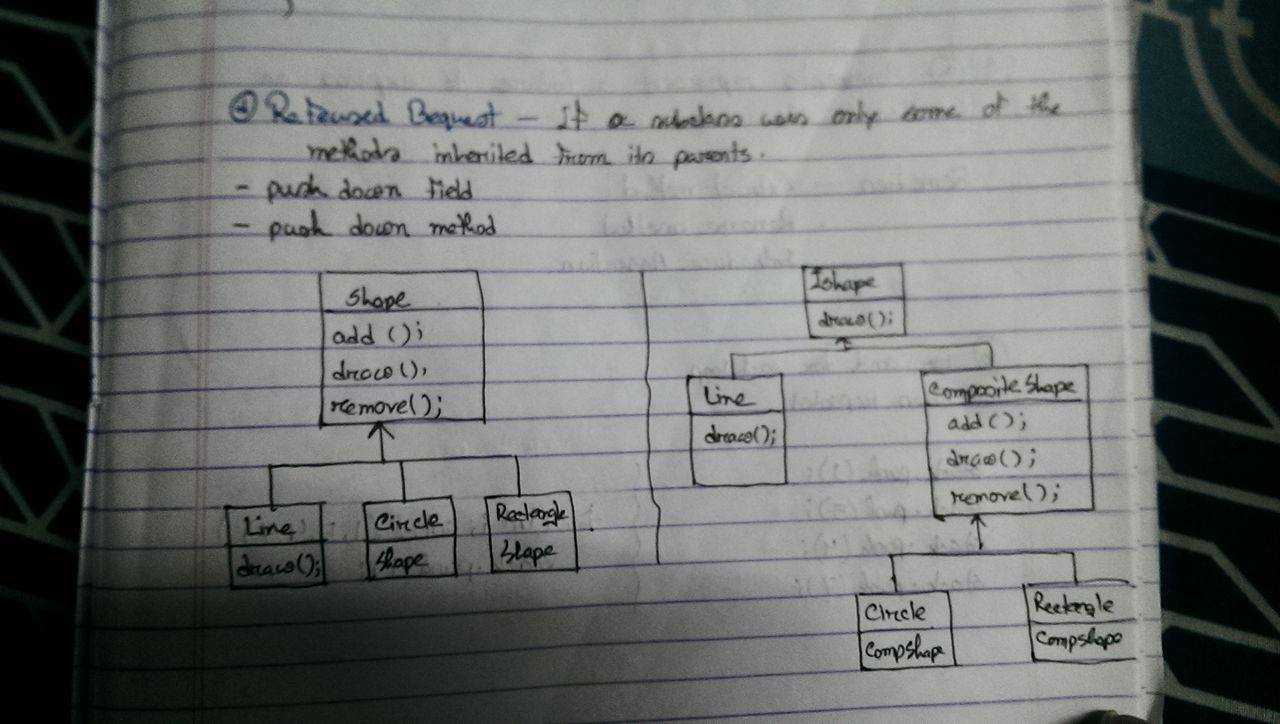 ④ Refused Bequest — If a subclass uses only some of the
methods inherited from its parents.
- push down field
- push down method
Shape
add ();
draw();
remove();
Line
draw();
Circle
Shape
Rectangle
Shape
Ishape
draw();
Line
draw();
Composite Shape
add();
draw();
remove();
Circle
CompShape
Rectangle
CompShape